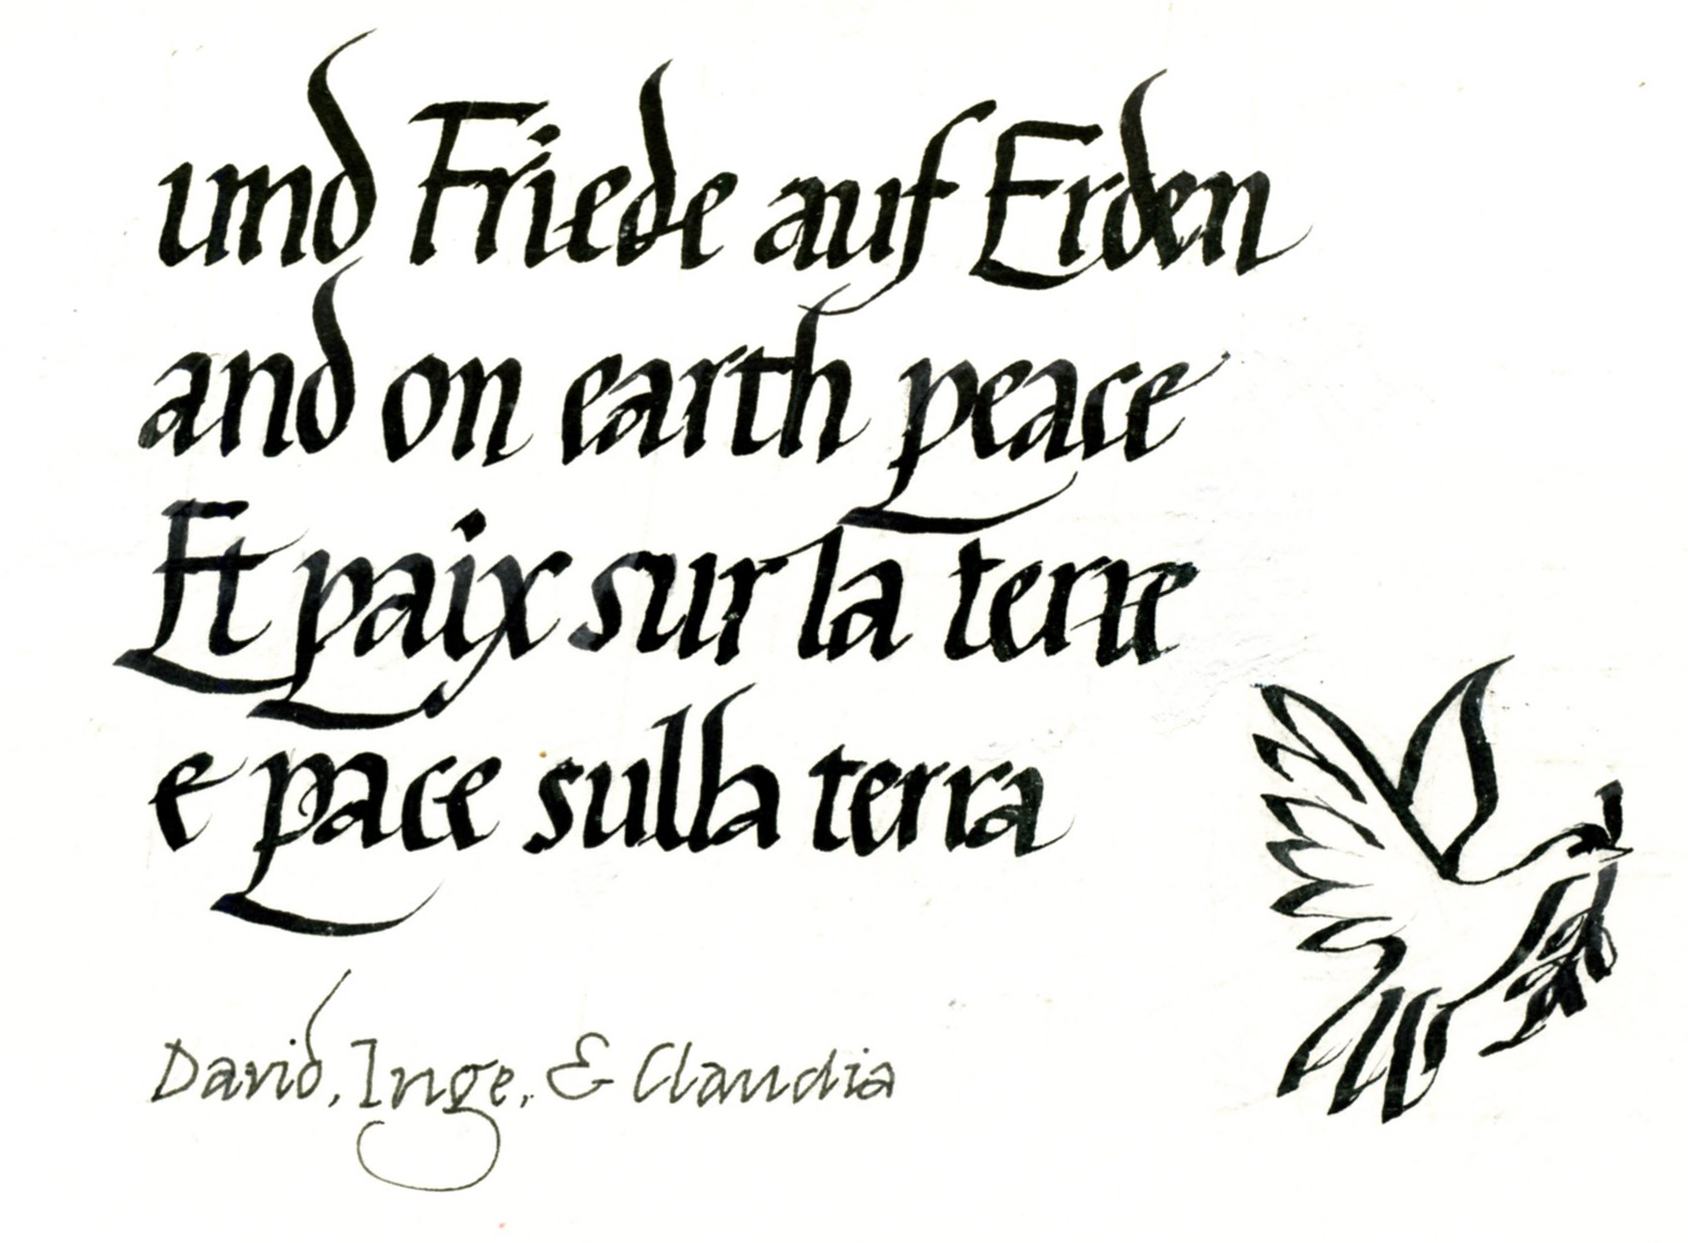 und Friede auf Erden
and on earth peace
Et paix sur la terre
e pace sulla terra
David, Inge, & Claudia